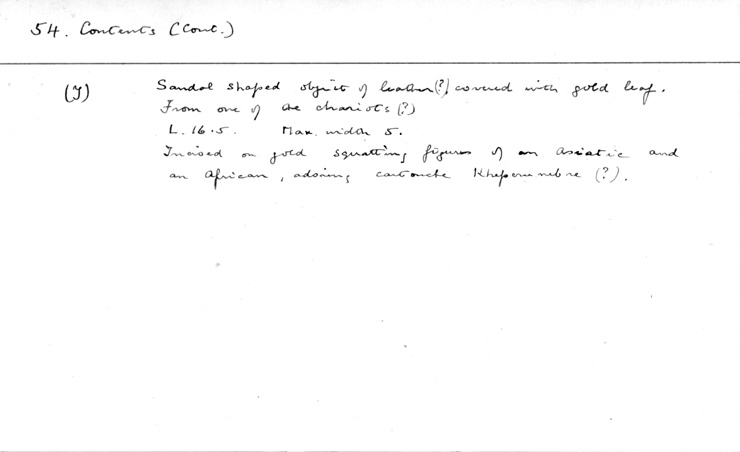 54. Contents (Cont.)
(y) Sandal shaped object of leather (?) covered with gold leaf.
From one of the chariots (?)
L. 16.5. Max. width 5.
Incised on gold squatting figures of an Asiatic and
an African, adoring cartouche Kheperunebre (?).